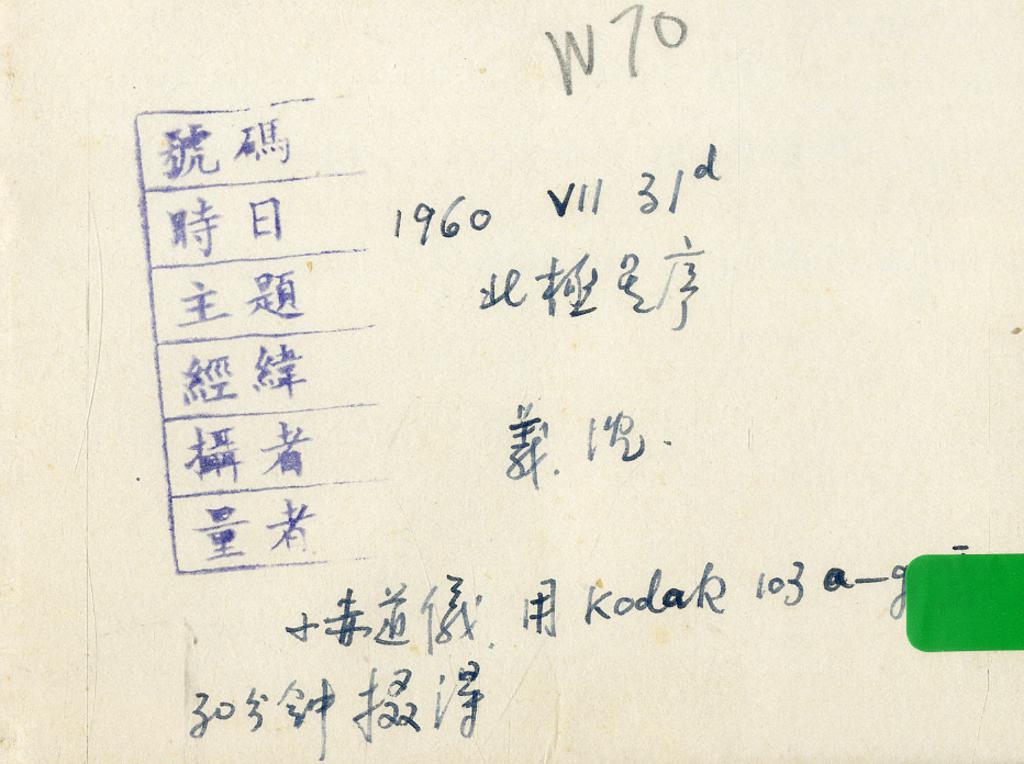 W70
號碼
時日 1960 VII 31d
主題 北極星序
經緯
攝者 義.沈.
量者
小赤道儀.用 Kodak 103 a-g
30分鈡摄得